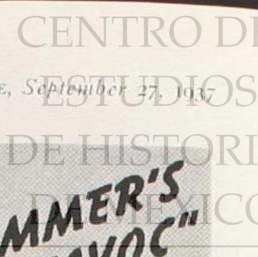 CENTRO DE
E, September 27, 1937
ESTUDIOS
DE HISTORI
DE MÉXICO
MMER'S
VOC"